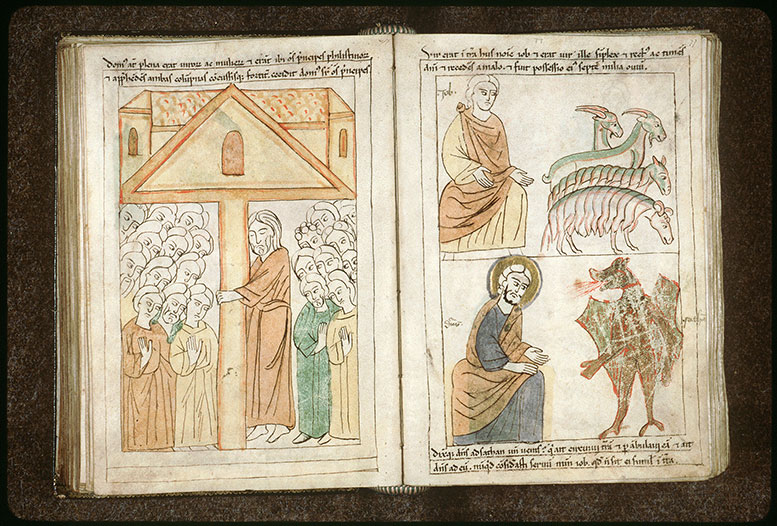 Dom' aut plena erat viror ac muliere & erāt ibi os p̄ncipes philistinor
& app̄hēdens ambas colūpnas cōcussisq; fortit. cecidit dom' sr̄ os p̄ncipes
Vir erat ī tr̄a hus noīe iob & erat vir ille sīplex & rect' ac timēs
dm̄ & recedēs a malo. & fuit possessio ei' septē milia oviū.
iob.
Dixitq; dn̄s ad sathan un̄ venis? q̄ ait circuivi tr̄ā & pābulavi eā & ait
dn̄s ad eū. nūqd cōsidasti servū iob. qd n̄ sit ei simil' ī tr̄a.